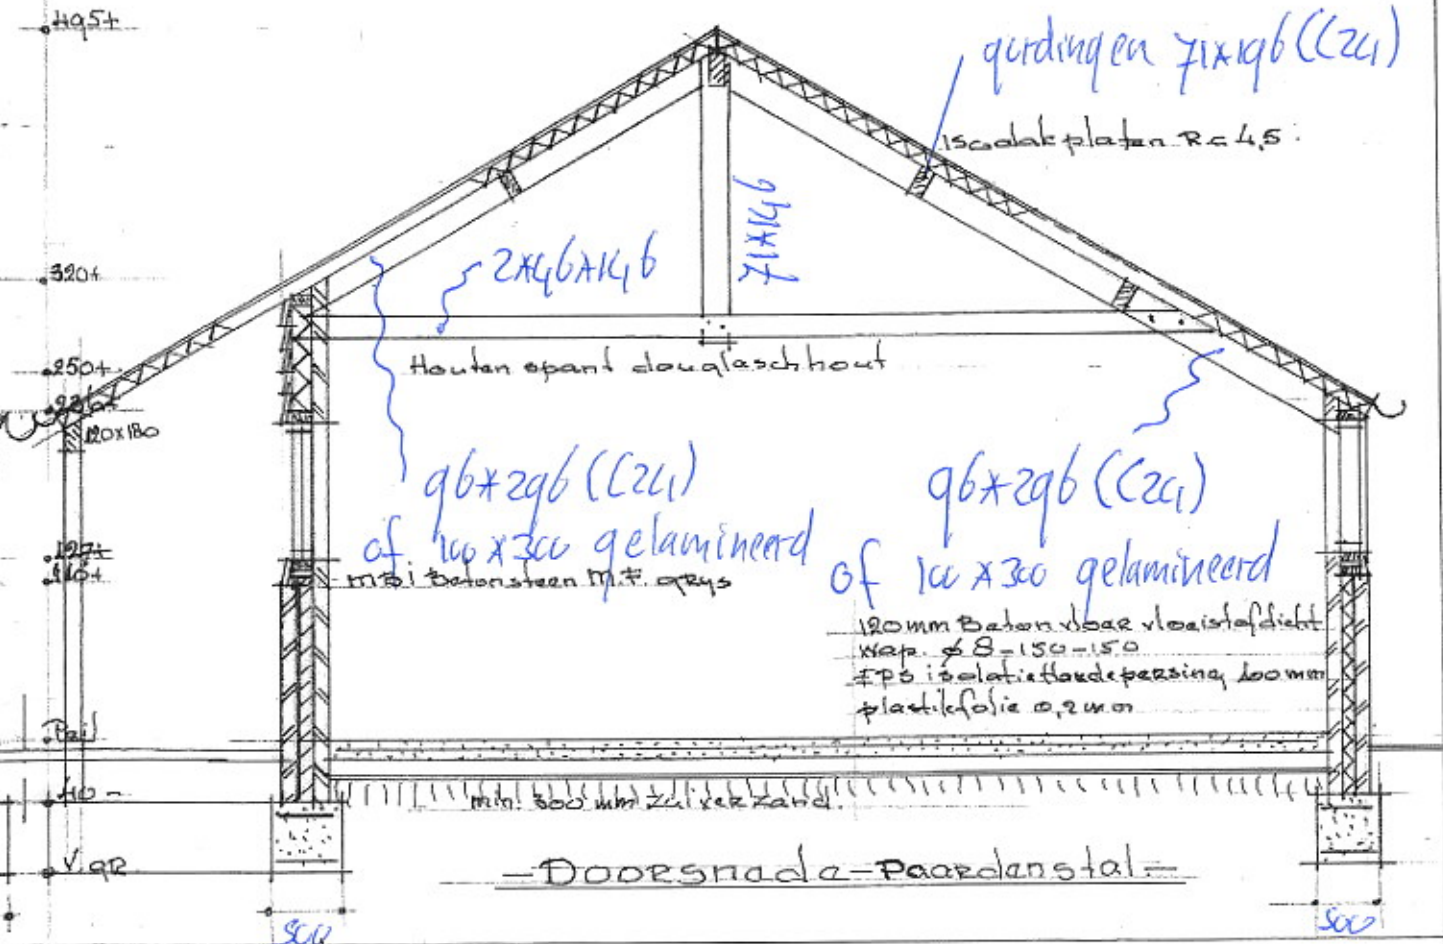 495+
gordingen 71x196 (C24)
Isodakplaten Rc 4,5
71x146
2x46x146
320+
Houten spant douglaschhout
250+
120x180
96x296 (C24)
of 100x300 gelamineerd
96x296 (C24)
of 100x300 gelamineerd
127+
110+
MBI Betonsteen M.F. grys
120mm Beton vloer vloeistofdicht
wap. ø 8-150-150
EPS isolatie Hardepersing 100mm
plastikfolie 0,2mm
Peil
40-
min. 300 mm Zuiver Zand.
V. gr.
-Doorsnede-Paardenstal-
500
500